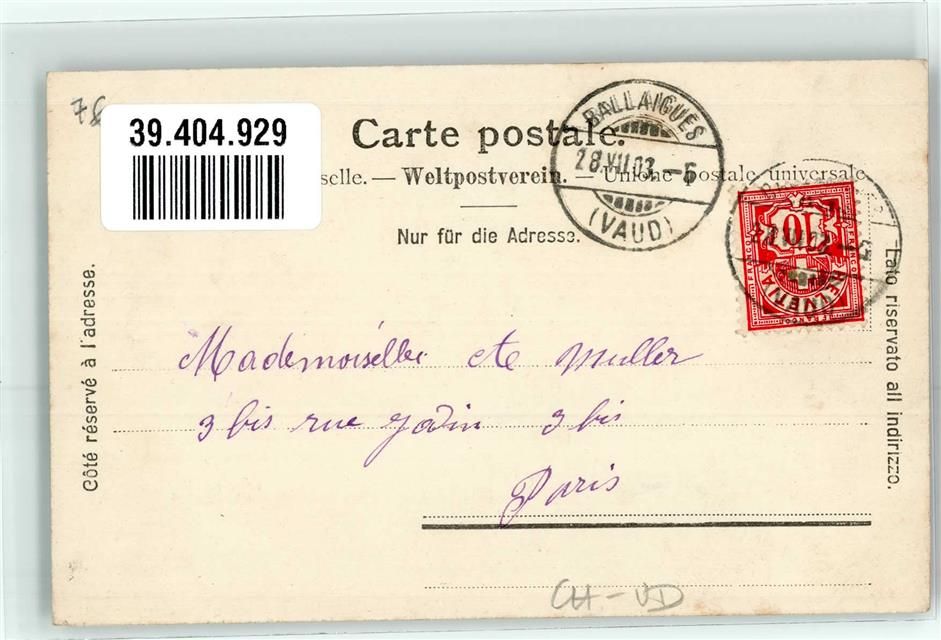 39.404.929
Carte postale.
selle. — Weltpostverein. — Unione postale universale
Nur für die Adresse.
BALLAIGUES
28.VII.03.-5
(VAUD)
10
HELVETIA
FRANCO
Côté réservé à l'adresse.
Lato riservato all indirizzo.
Mademoiselle Muller
3 bis rue Jadin 3 bis
Paris
CH-VD